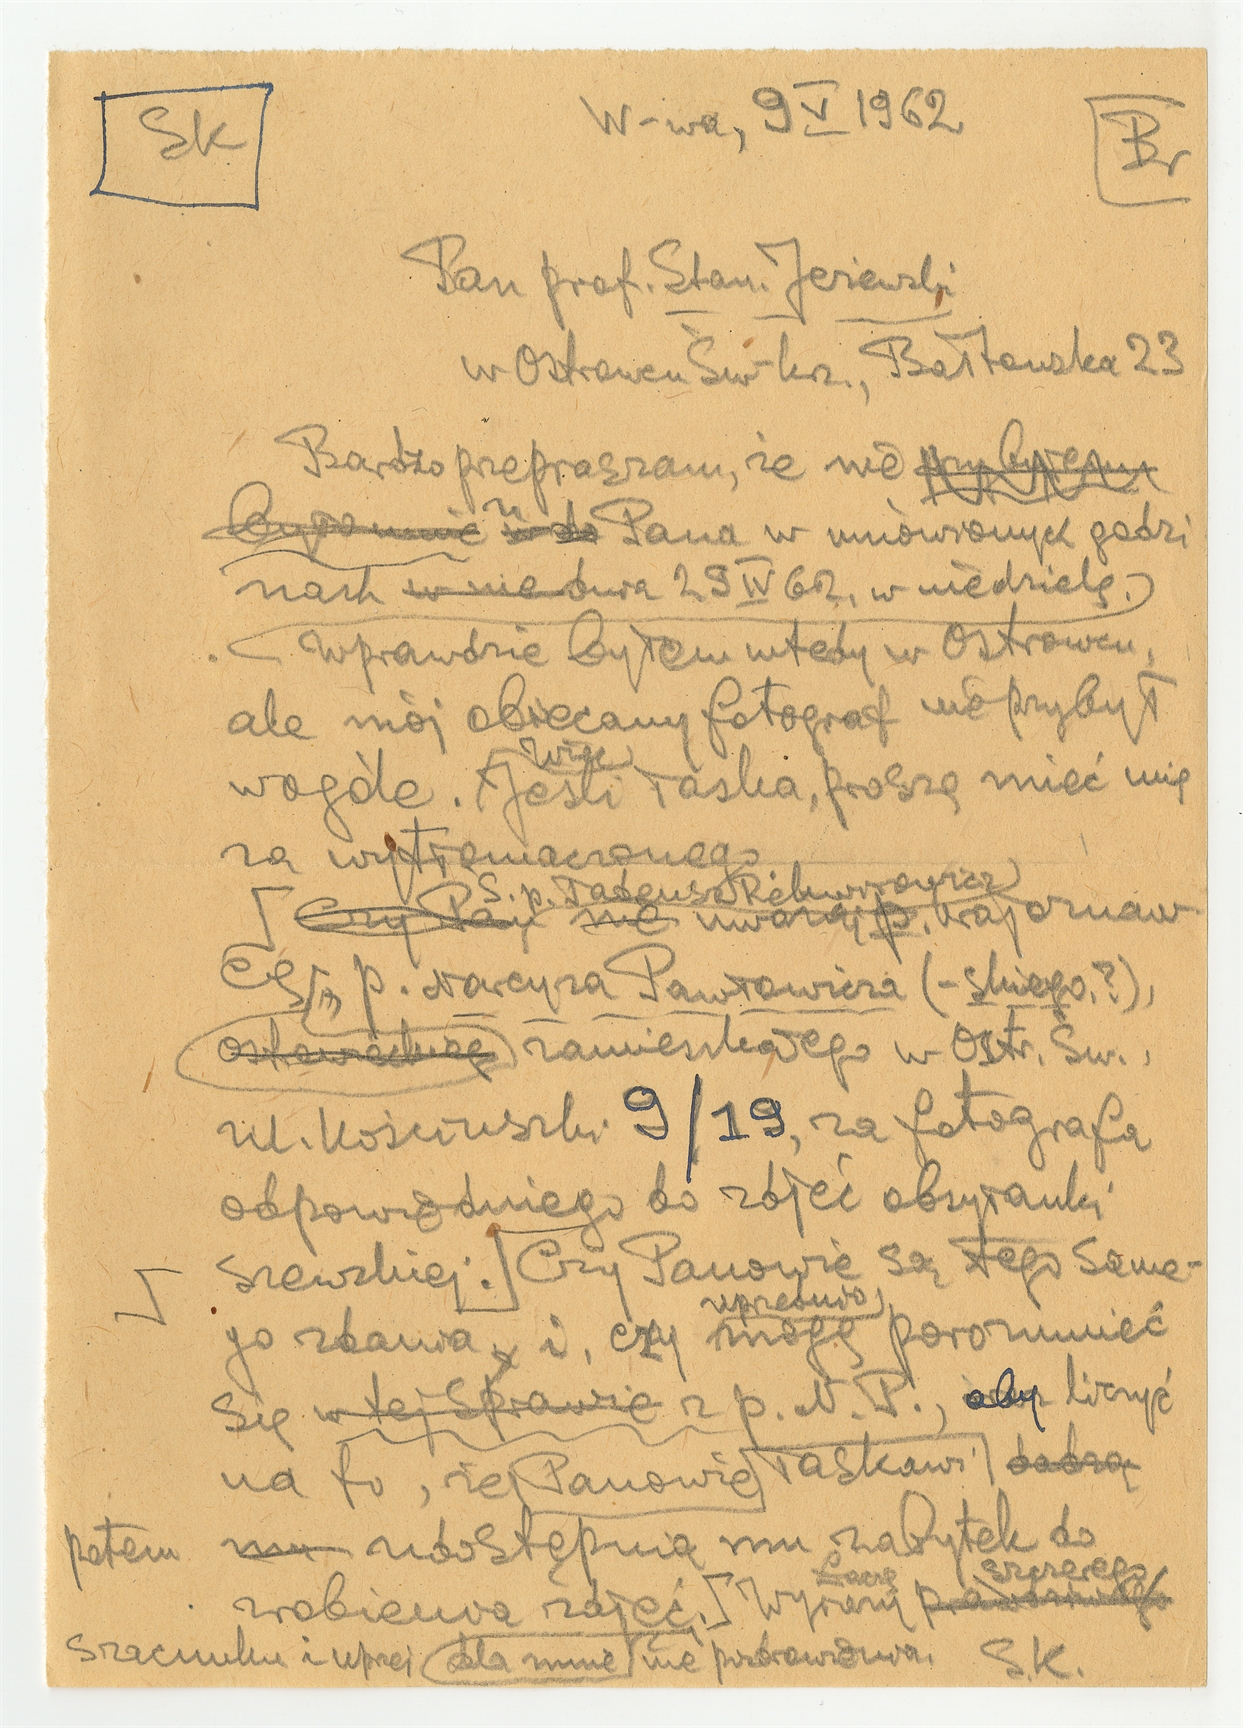 SK
W-wa, 9 V 1962
Br
Pan prof. Stan. Jeżewski
w Ostrowcu Św-krz., Bałtowska 23
Bardzo przepraszam, że nie przybyłem
było mnie w do u Pana w umówionych godzi
nach w nie dnia 29 IV 62, w niedzielę.
Wprawdzie byłem wtedy w Ostrowcu,
ale mój obiecany fotograf nie przybył
wogóle. Jeśli więc łaska, proszę mieć mię
za wytłomaczonego
S. p. Tadeusz
Czy Pan nie uważał p. krajoznaw
cę p. Narcyza Pawłowicza (-skiego?),
zamieszkałego w Ostr. Św.,
ul. Kościuszki 9/19, za fotografa
odpowiedniego do zdjęć obsyłanki
szewskiej. Czy Panowie są tego same-
go zdania i, czy mogę uprzednio porozumieć
się w tej sprawie z p. N. P., aby liczyć
na to, że Panowie łaskawi dadzą
potem mu udostępnią mu zabytek do
zrobienia zdjęć. Wyrazy łączę szczerego
szacunku i uprzej dla mnie me pozdrowienia. S.K.